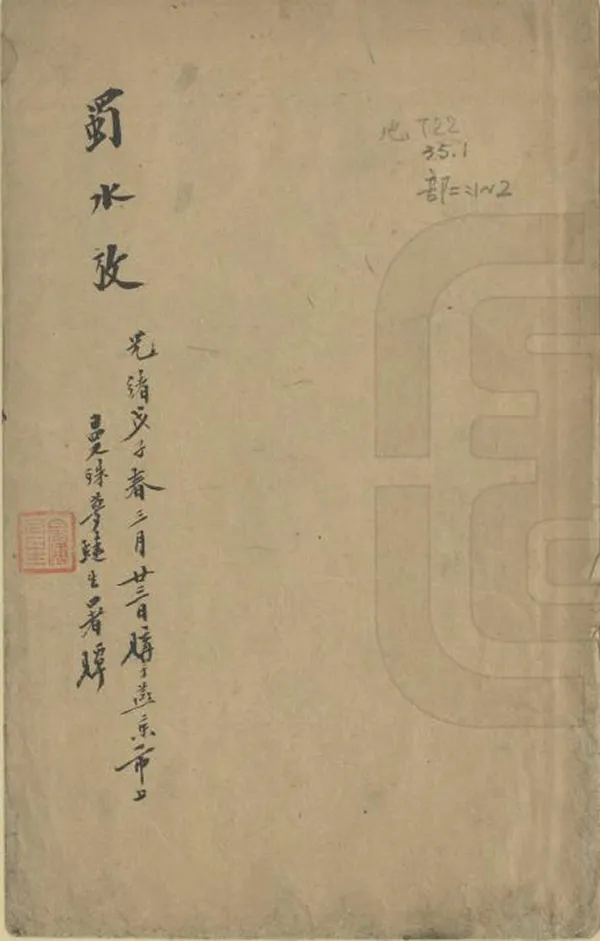 蜀水攷
光緒戊子春三月廿三日購于燕京市上
曼殊生署
地 T22
35.1
部二:1~2